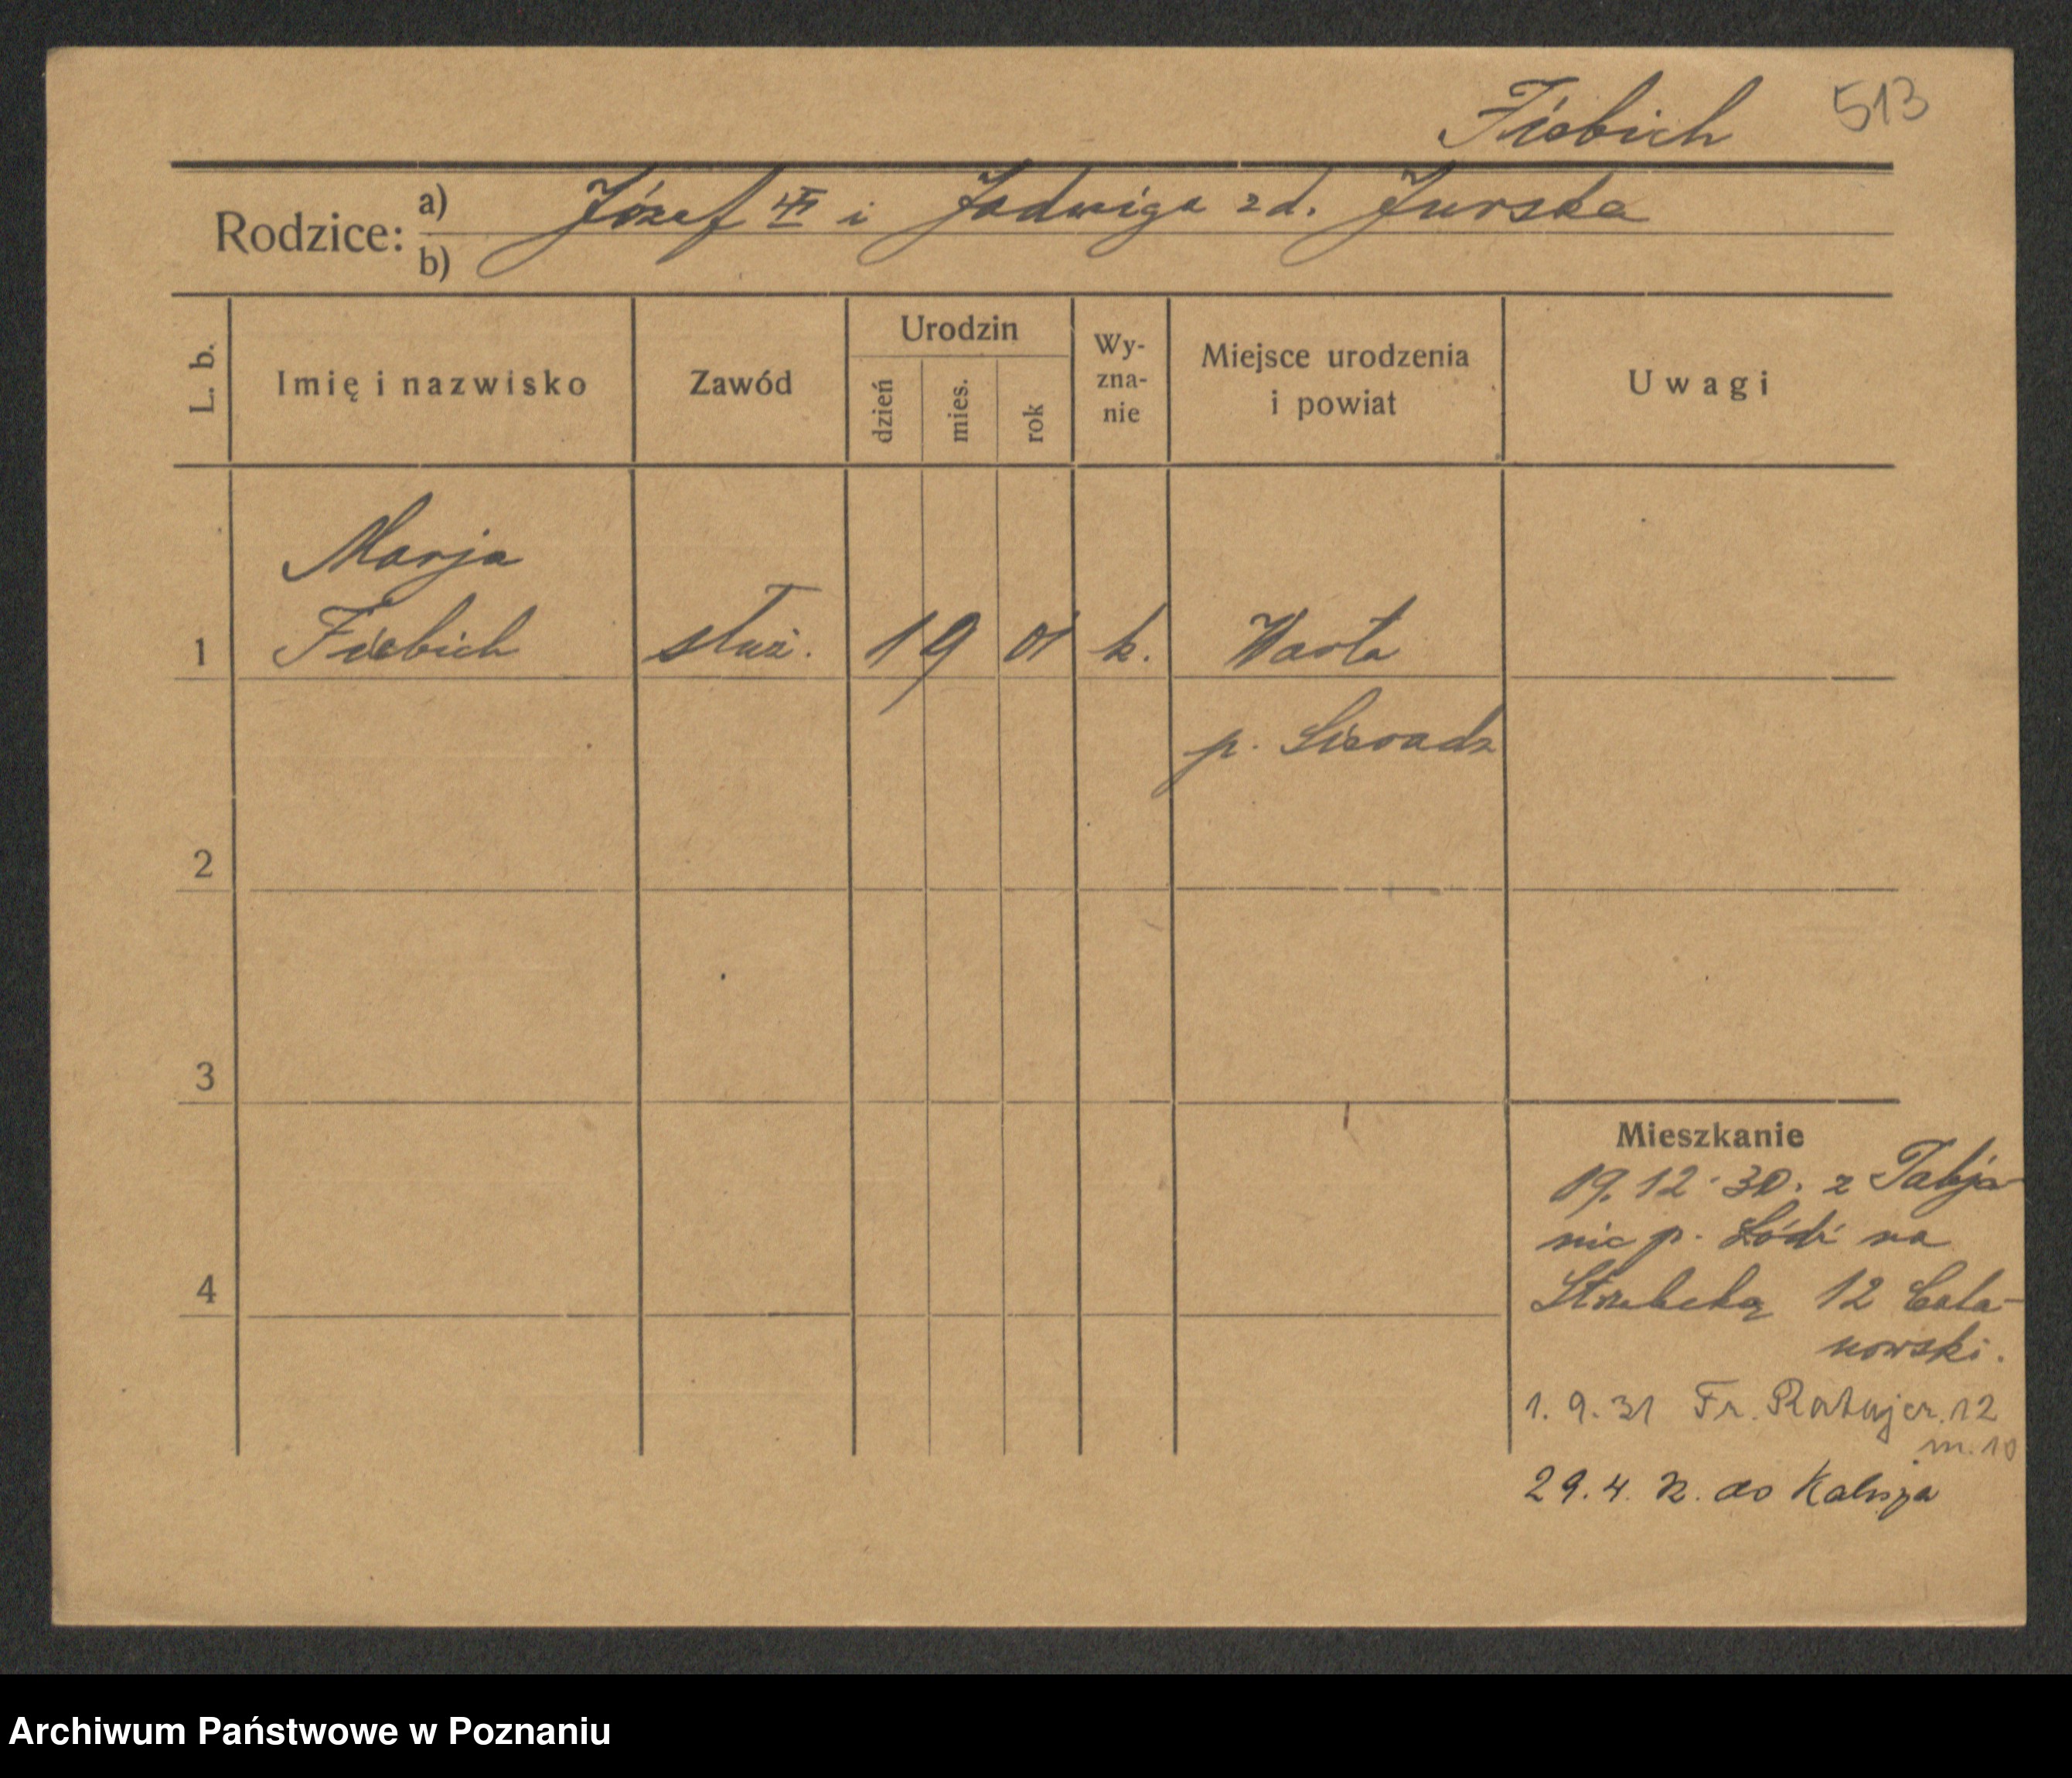 Fiebich 513
Rodzice: a) Józef i Jadwiga zd. Jurska
b)
L. b. Imię i nazwisko Zawód Urodzin dzień mies. rok Wy-zna-nie Miejsce urodzenia i powiat Uwagi
Marja
1 Fiebich służ. 1 9 01 k. Warta
p. Sieradz
2
3
Mieszkanie
19.12.30. z Pabja-
nic p. Łódź na
4 12 Cela-
nowski.
1.9.31 Fr. Ratajcz. 12
m. 10
29.4. do Kalisza
Archiwum Państwowe w Poznaniu